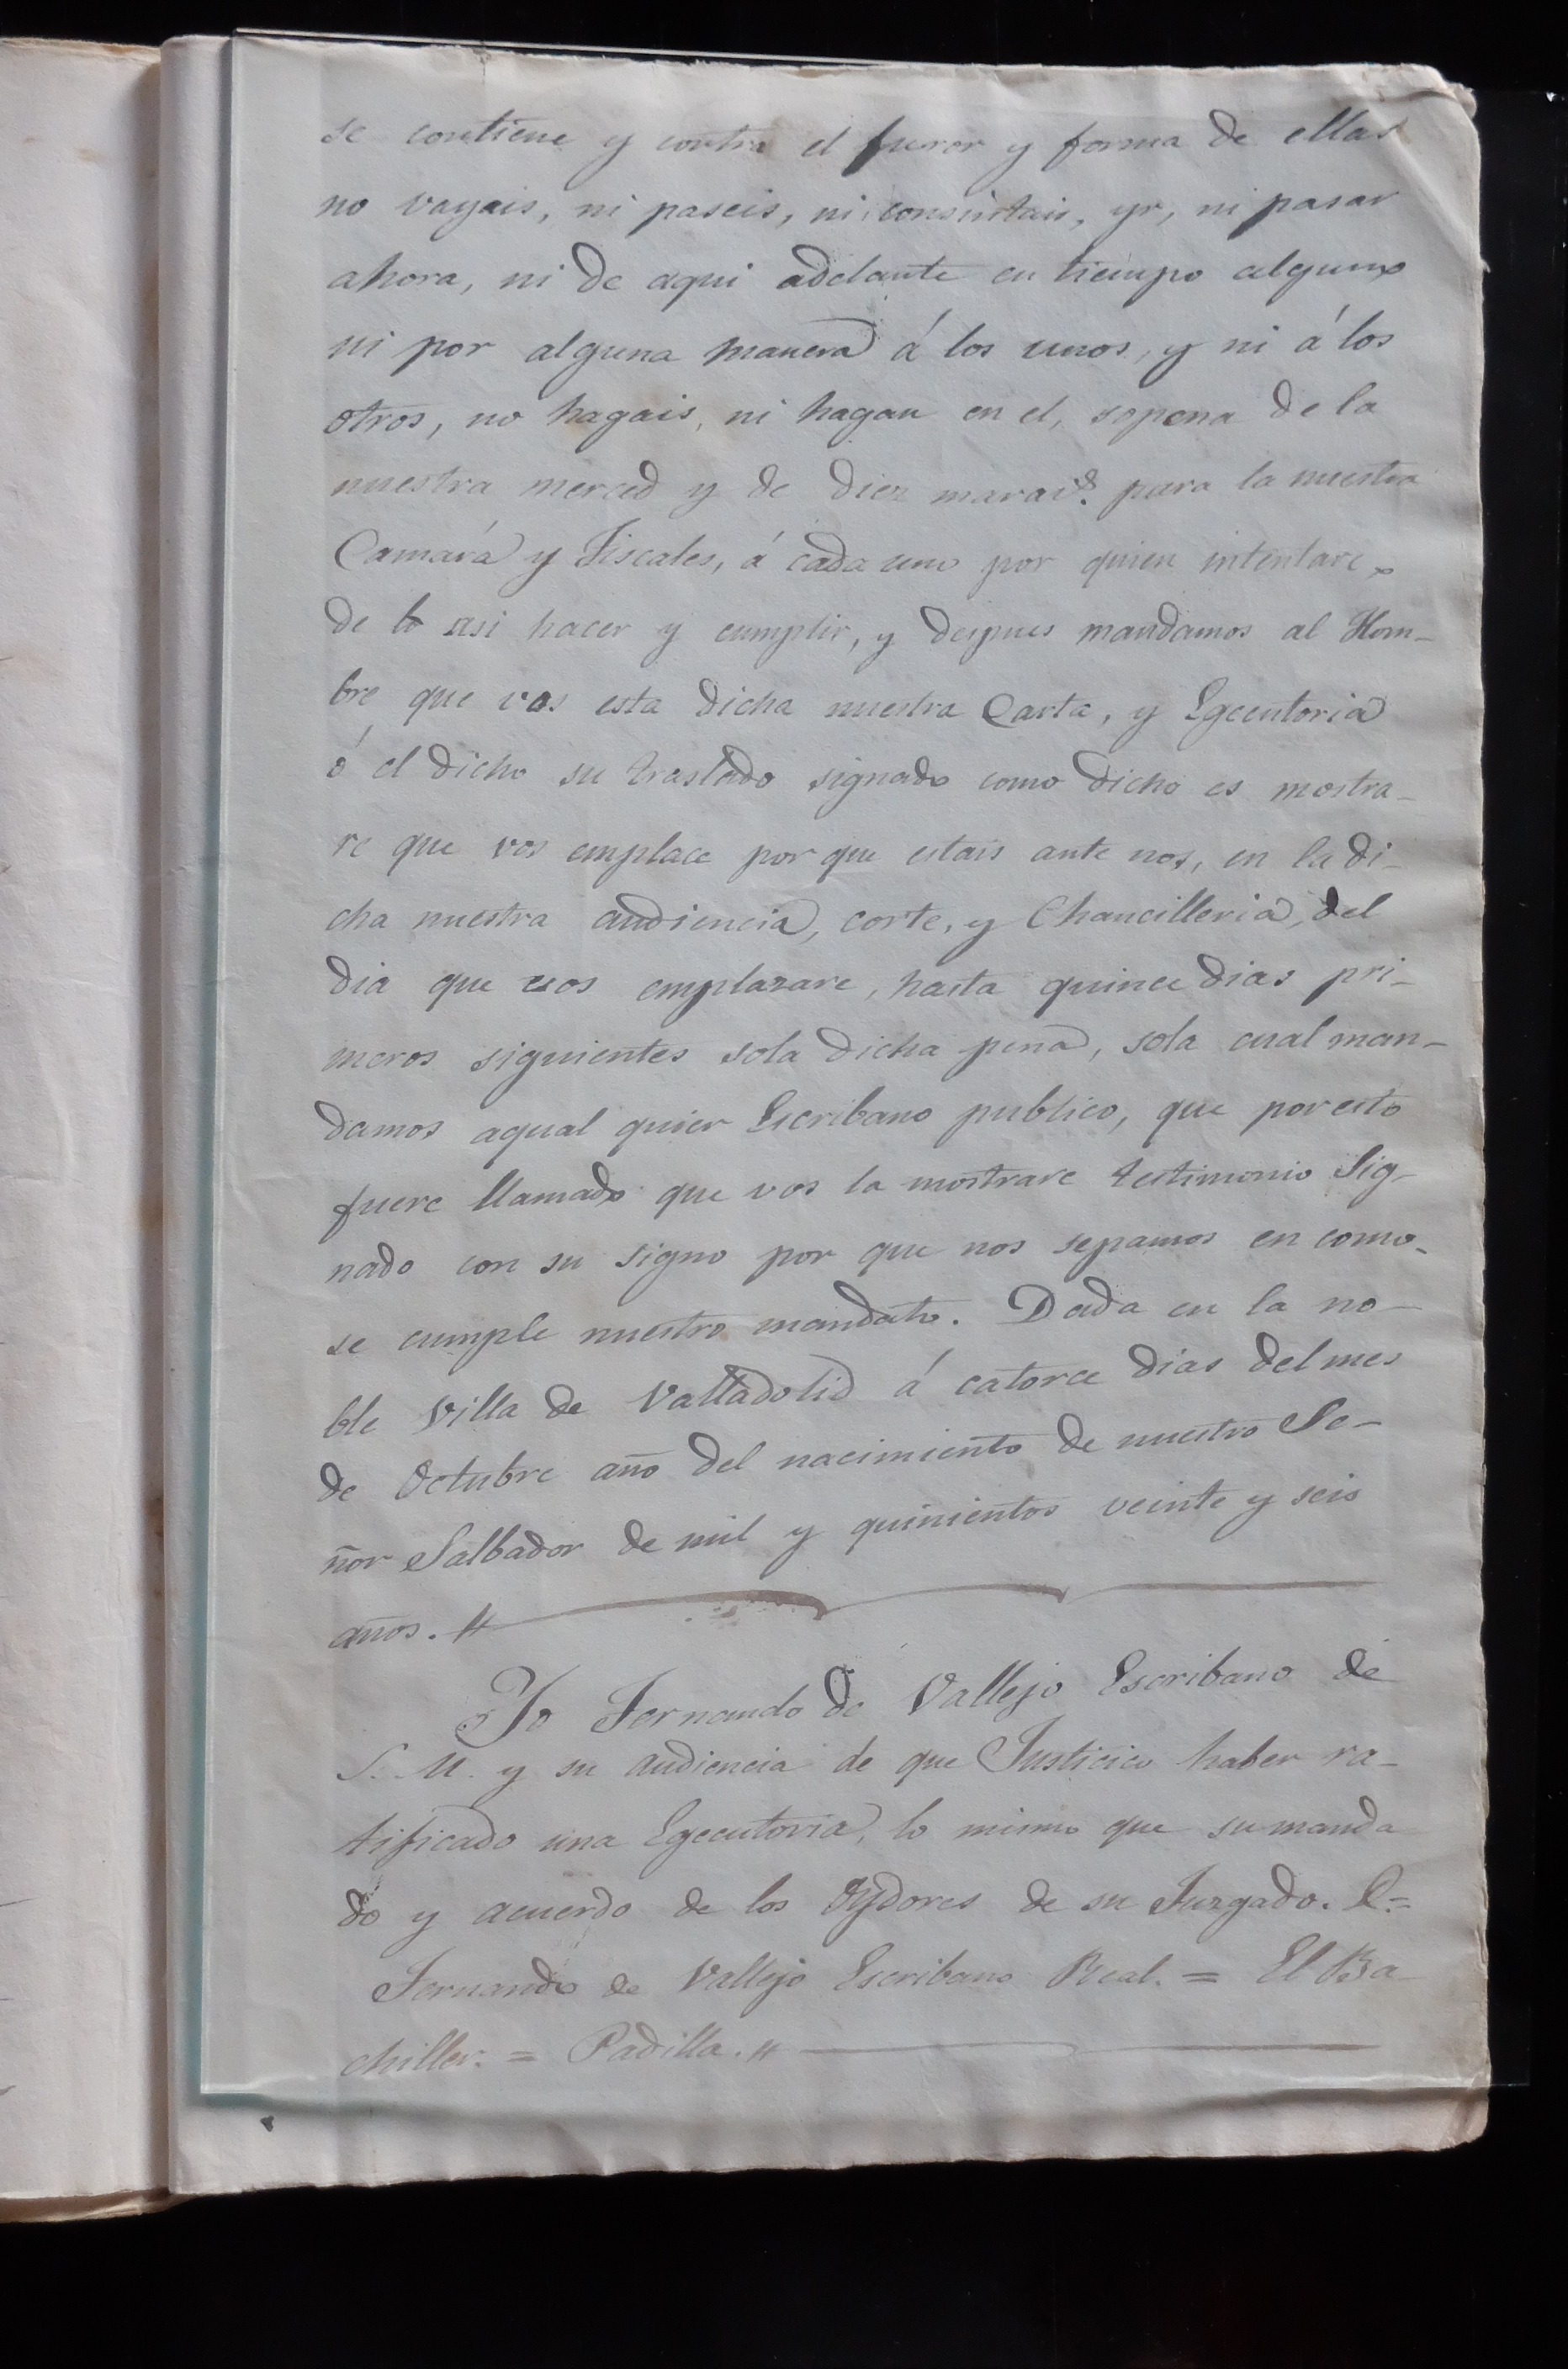 se contiene y contra el furor y forma de ellas
no vayais, ni paseis, ni consintais, yr, ni pasar
ahora, ni de aqui adelante en tiempo alguno
ni por alguna manera á los unos, y ni á los
otros, no hagais, ni hagan en el, sopena de la
nuestra merced y de diez maravs. para la nuestra
Camará y Fiscales, á cada uno por quien intentare
de lo asi hacer y cumplir, y despues mandamos al Hom-
bre que vos esta dicha nuestra Carta, y Egecutoria
ó el dicho su traslado signado como dicho es mostra-
re que vos emplace por que estais ante nos, en la di-
cha nuestra audiencia, corte, y Chancilleria, del
dia que vos emplazare, hasta quince dias pri-
meros siguientes sola dicha pena, sola cual man-
damos aqual quier Escribano publico, que por esto
fuere llamado que vos la mostrare testimonio Sig-
nado con su signo por que nos sepamos en como
se cumple nuestro mandato. Dada en la no-
ble Villa de Valladolid á catorce dias del mes
de Octubre año del nacimiento de nuestro Se-
ñor Salbador de mil y quinientos veinte y seis
años. #
Yo Fernando de Vallejo Escribano de
S. M. y su audiencia de que Justicico haber ra-
tificado una Egecutoria, lo mismo que su manda
do y acuerdo de los Oydores de su Juzgado.
Fernando de Vallejo Escribano Real. = El Ba-
chiller. = Padilla. #